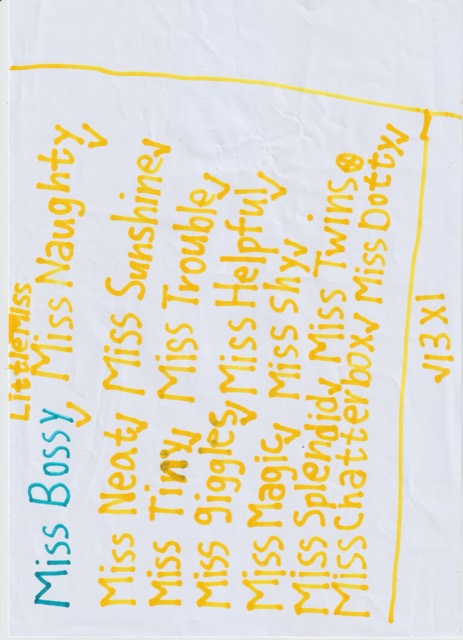 Little Miss
Miss Bossy✓ Miss Naughty✓
Miss Neat✓ Miss Sunshine✓
Miss Tiny✓ Miss Trouble✓
Miss giggles✓ Miss Helpful✓
Miss Magic✓ Miss shy✓
Miss Splendid✓ Miss Twins⊗
Miss Chatterbox✓ Miss Dotty✓
✓13 X1